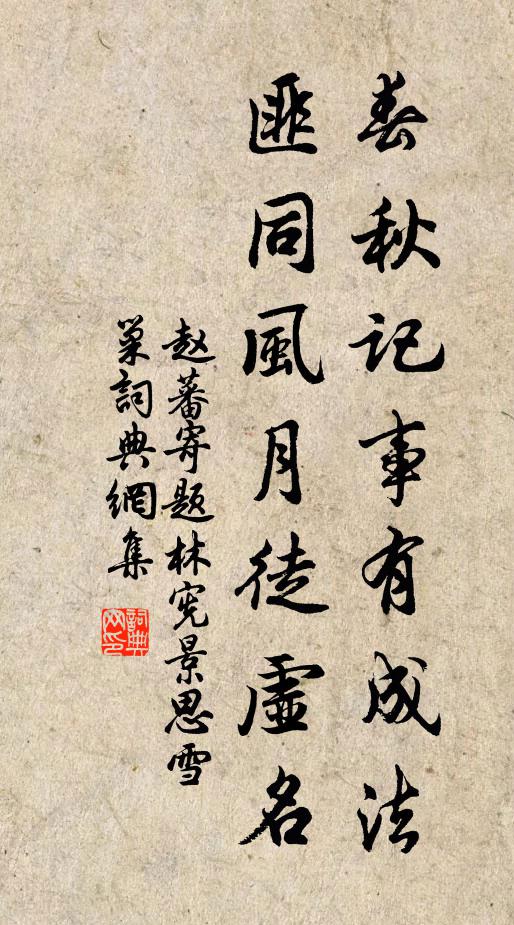 春秋记事有成法
匪同風月徒虛名
赵蕃寄题林宪景思雪
巢詞典網集
詞典网印